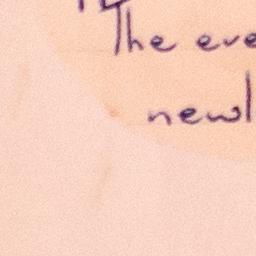 The eve
newl